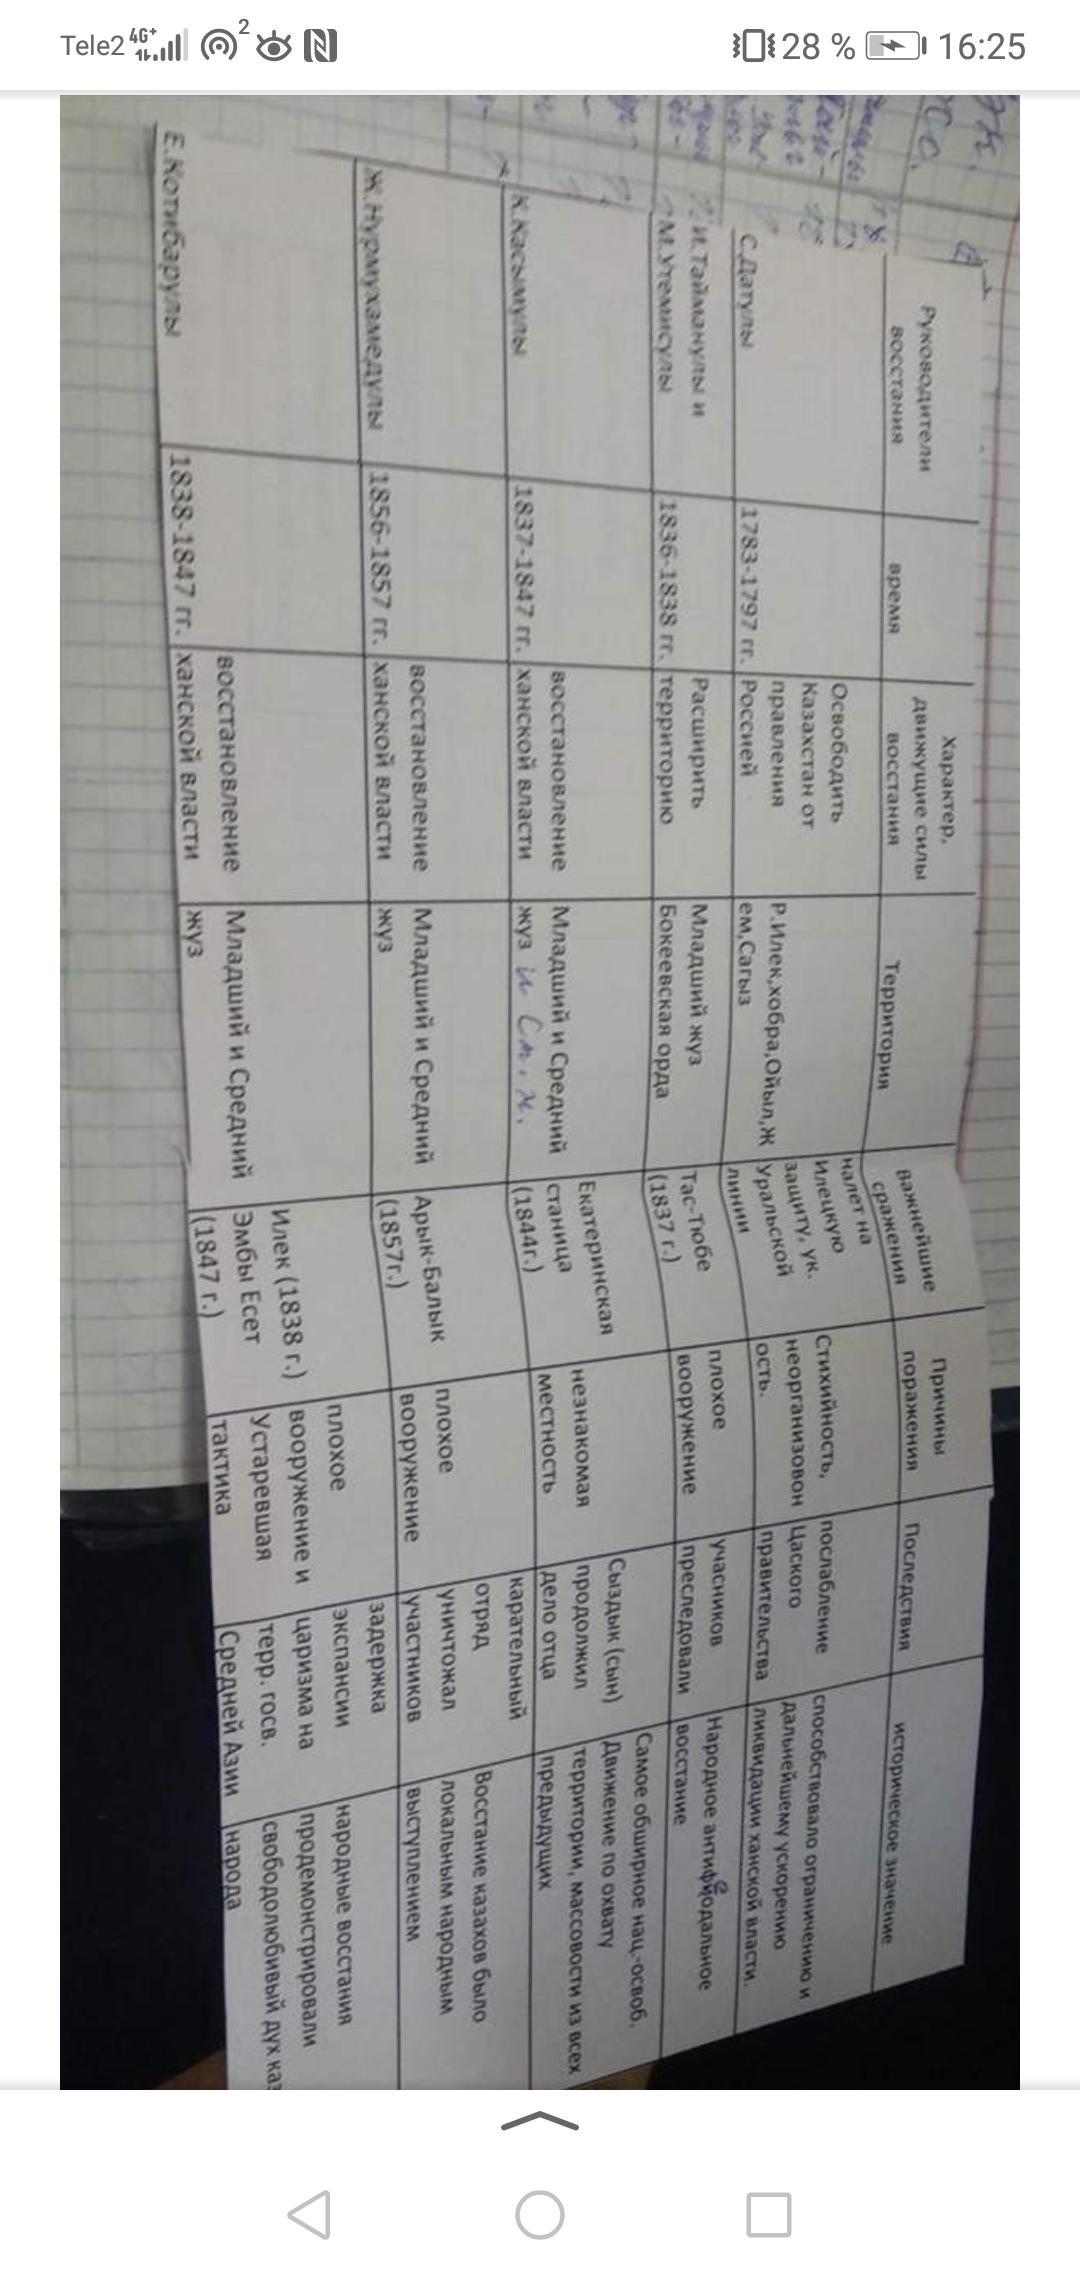 Tele2 4G+ 2 28 % 16:25
Руководители
восстания
время
Характер,
движущие силы
восстания
Территория
важнейшие
сражения
Причины
поражения
Последствия
историческое значение
С.Датулы
1783-1797 гг.
Освободить
Казахстан от
правления
Россией
Р.Илек,хобра,Ойыл,Ж
ем,Сагыз
налет на
Илецкую
защиту, ук.
Уральской
линии
Стихийность,
неорганизовон
ость.
послабление
Цаского
правительства
способствовало ограничению и
дальнейшему ускорению
ликвидации ханской власти.
И.Тайманулы и
М.Утемисулы
1836-1838 гг.
Расширить
территорию
Младший жуз
Бокеевская орда
Тас-Тюбе
(1837 г.)
плохое
вооружение
учасников
преследовали
Народное
восстание
К.Касымулы
1837-1847 гг.
восстановление
ханской власти
Младший и Средний
жуз и Ст. ж.
Екатеринская
станица
(1844г.)
незнакомая
местность
Сыздык (сын)
продолжил
дело отца
Самое обширное нац.-освоб.
Движение по охвату
территории, массовости из всех
предыдущих
Ж.Нурмухамедулы
1856-1857 гг.
восстановление
ханской власти
Младший и Средний
жуз
Арык-Балык
(1857г.)
плохое
вооружение
карательный
отряд
уничтожал
участников
Восстание казахов было
локальным народным
выступлением
Е.Котибарулы
1838-1847 гг.
восстановление
ханской власти
Младший и Средний
жуз
Илек (1838 г.)
Эмбы Есет
(1847 г.)
плохое
вооружение и
Устаревшая
тактика
задержка
экспансии
царизма на
терр. госв.
Средней Азии
народные восстания
продемонстрировали
свободолюбивый дух каз
народа